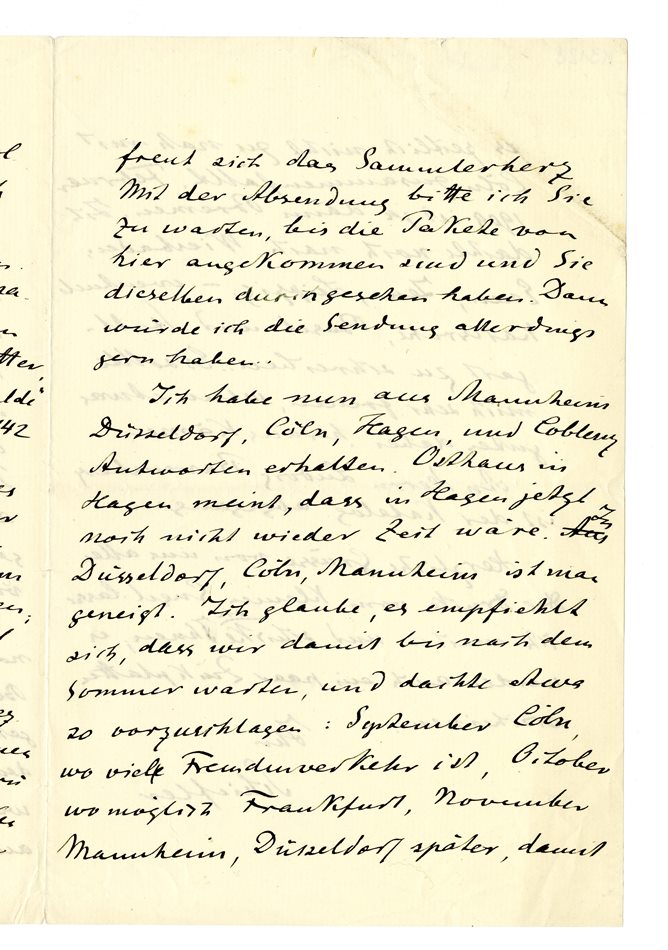 freut sich das Sammlerherz
Mit der Absendung bitte ich Sie
zu warten, bis die Pakete von
hier angekommen sind und Sie
dieselben durchgesehen haben. Dann
würde ich die Sendung allerdings
gern haben.
Ich habe nun aus Mannheim
Düsseldorf, Cöln, Hagen, und Coblenz
Antworten erhalten. Osthaus in
Hagen meint, dass in Hagen jetzt
noch nicht wieder Zeit wäre. In
Düsseldorf, Cöln, Mannheim ist man
geneigt. Ich glaube, es empfiehlt
sich, dass wir damit bis nach dem
Sommer warten, und dachte etwa
so vorzuschlagen: September Cöln,
wo viel Fremdenverkehr ist, October
womöglich Frankfurt, November
Mannheim, Düsseldorf später, damit